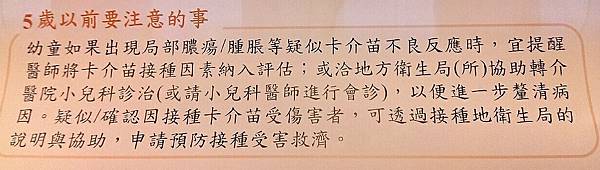 5歲以前要注意的事
幼童如果出現局部膿瘍/腫脹等疑似卡介苗不良反應時，宜提醒
醫師將卡介苗接種因素納入評估；或洽地方衛生局(所)協助轉介
醫院小兒科診治(或請小兒科醫師進行會診)，以便進一步釐清病
因。疑似/確認因接種卡介苗受傷害者，可透過接種地衛生局的
說明與協助，申請預防接種受害救濟。